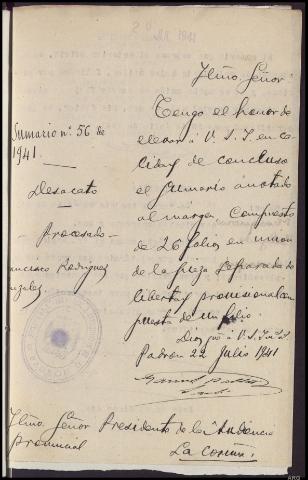 Iltmo. Señor:
Sumario nº. 56 de
1941.
Desacato
Procesado
Francisco Rodriguez
Gonzalez.
Tengo el honor de
elevar a V. S. I. en ca-
lidad de concluso
el sumario anotado
al margen, compuesto
de 26 folios en union
de la pieza separada de
libertad provisional com-
puesta de un folio.
Dios gue a V. S. I.
Padron 22 Julio 1941
Iltmo. Señor Presidente de la Audiencia
Provincial
La Coruña.